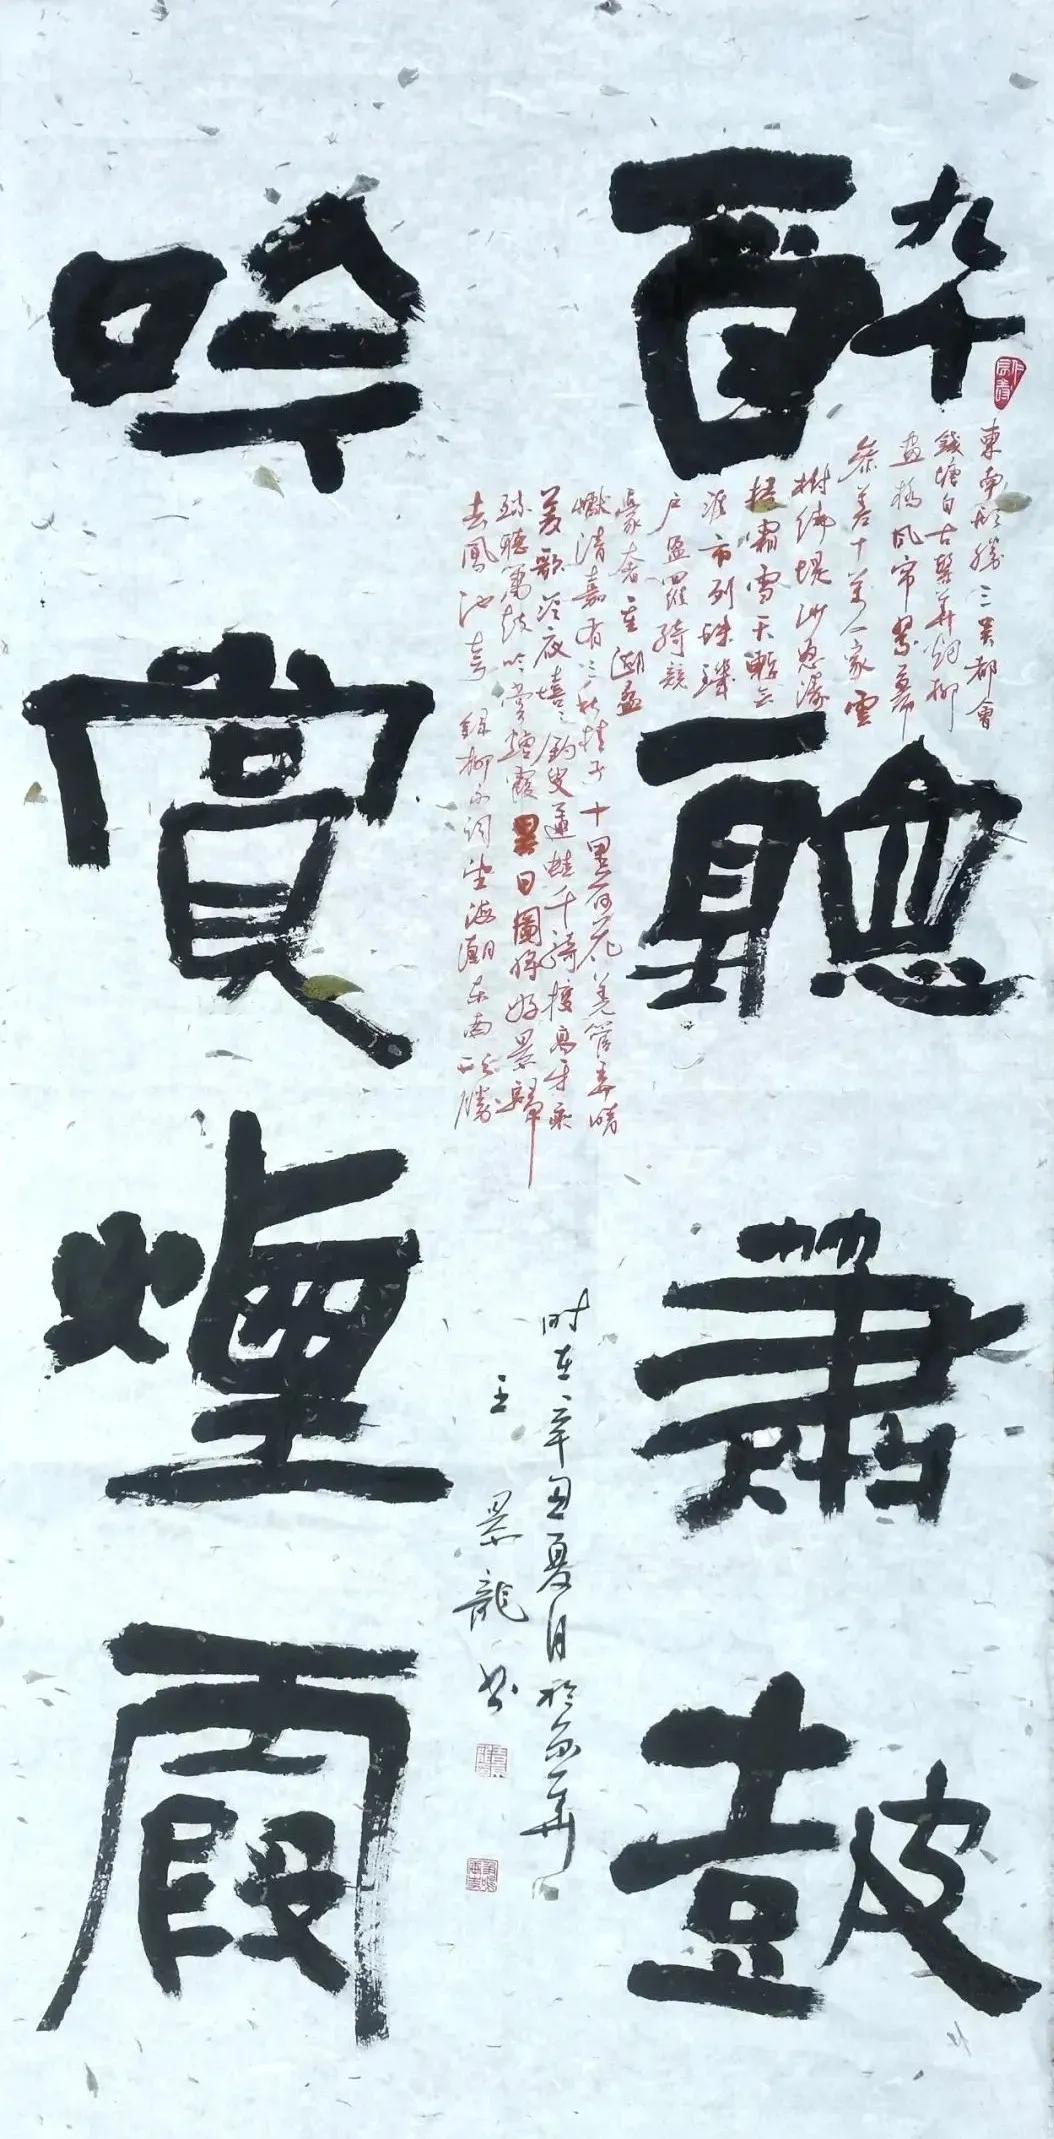 酔聽蕭皷
吟賞煙霞
東南形勝三吴都會
錢塘自古繁華烟柳
畫橋風帘翠幕
参差十萬人家雲
樹繞堤沙怒濤
捲霜雪天塹無
涯市列珠璣
户盈羅綺競
豪奢重湖叠
巘清嘉有三秋桂子十里荷花羌管弄晴
菱歌泛夜嬉々釣叟蓮娃千騎擁高牙乘
醉聽簫鼓吟賞煙霞異日圖將好景歸
去鳳池夸 録柳永詞望海潮東南形勝
时在辛丑夏月於金華
王景龍书